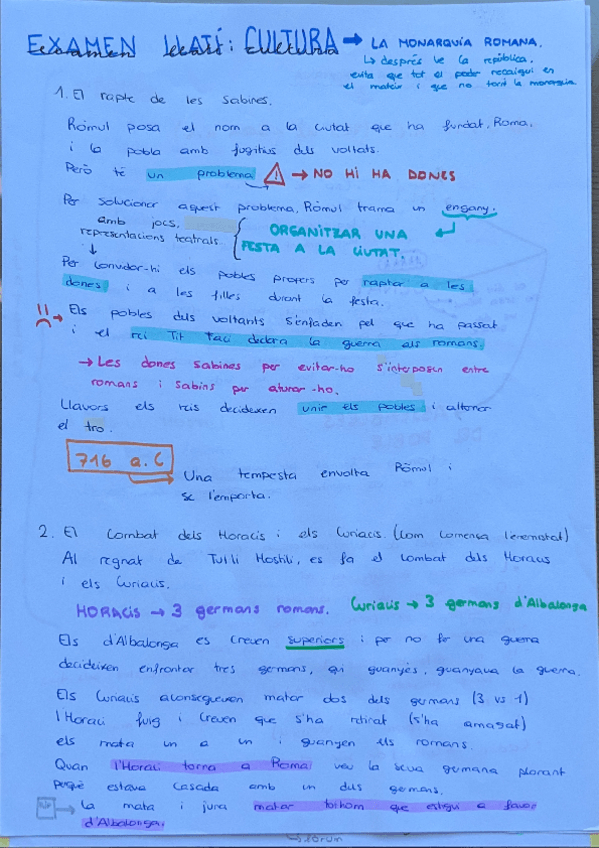 EXAMEN LLATÍ: CULTURA → LA MONARQUÍA ROMANA.
↳ després ve la república,
evita que tot el poder recaigui en
el mateix i que no torni la monarquia
1. El rapte de les Sabines.
Ròmul posa el nom a la ciutat que ha fundat, Roma,
i la pobla amb fugitius dels voltats.
Però té un problema → NO HI HA DONES
Per solucionar aquest problema, Ròmul trama un engany.
amb jocs,
representacions teatrals.
ORGANITZAR UNA
FESTA A LA CIUTAT.
Per convidar-hi els pobles propers per raptar a les
dones i a les filles durant la festa.
!! → Els pobles dels voltants s'enfaden pel que ha passat
i el rei Tit Taci declara la guerra als romans.
→ Les dones sabines per evitar-ho s'interposen entre
romans i sabins per aturar-ho.
Llavors els reis decideixen unir els pobles i alternar
el tro.
716 a.C
Una tempesta envolta Ròmul i
se l'emporta.
2. El Combat dels Horacis i els Curiacis. (com comença l'enemistat)
Al regnat de Tul·li Hostili, es fa el combat dels Horacis
i els Curiacis.
HORACIS → 3 germans romans. Curiacis → 3 germans d'Albalonga
Els d'Albalonga es creuen superiors i per no fer una guerra
decideixen enfrontar tres germans, qui guanyés, guanyava la guerra.
Els Curiacis aconsegueixen matar dos dels germans (3 vs 1)
l'Horaci fuig i creuen que s'ha retirat (s'ha amagat)
els mata un a un i guanyen els romans.
Quan l'Horaci torna a Roma veu la seva germana plorant
perquè estava casada amb un dels germans.
La mata i jura matar tothom que estigui a favor
d'Albalonga.